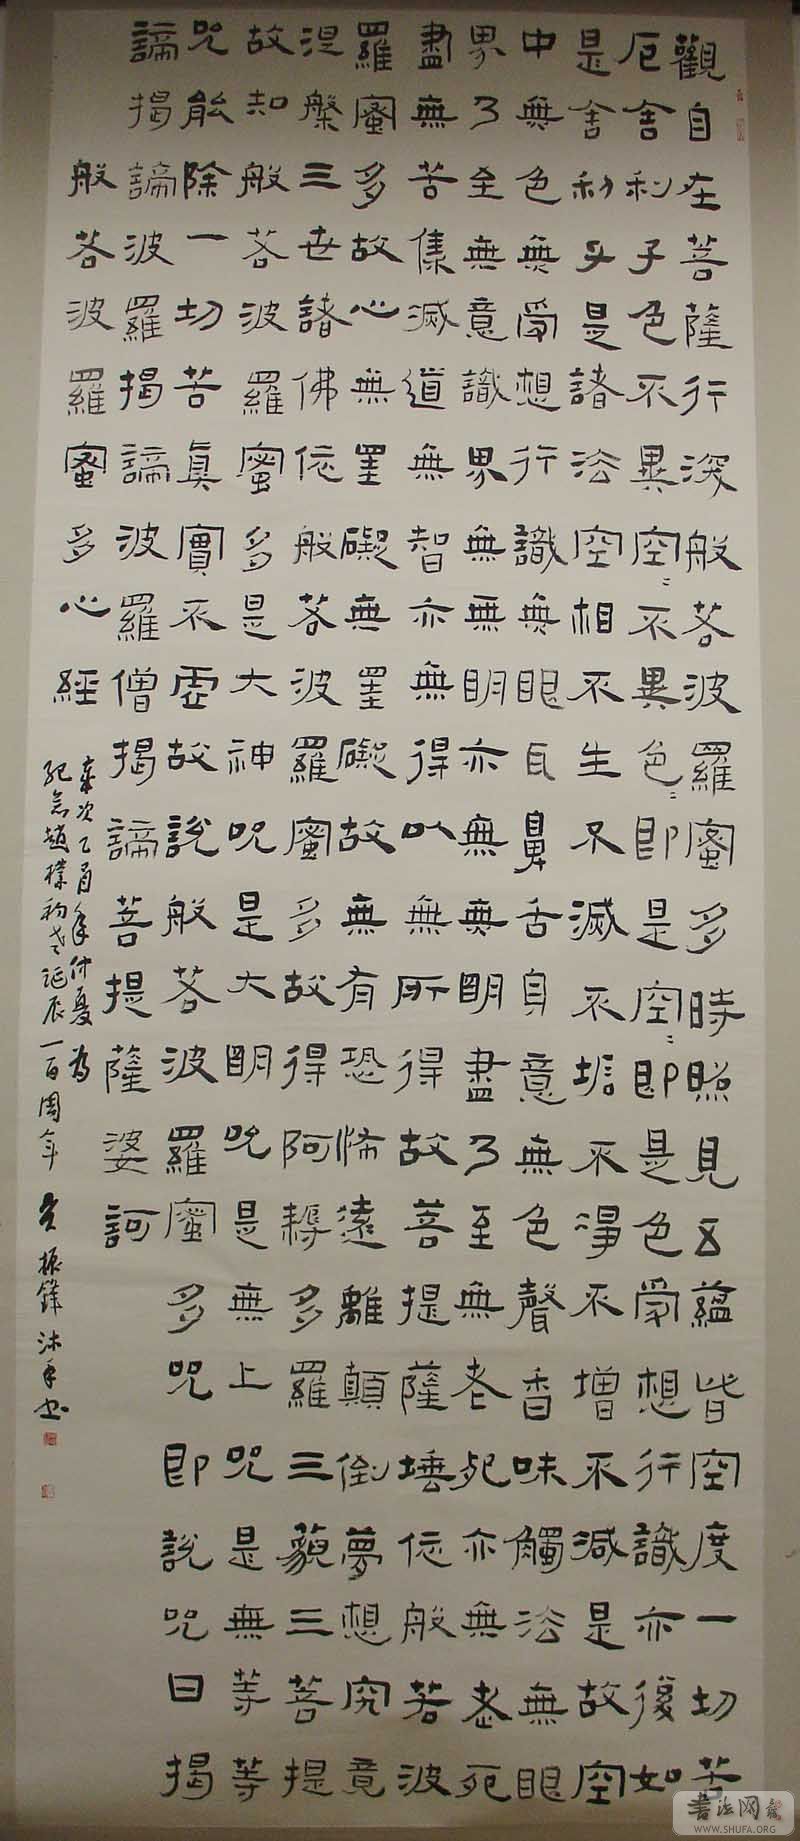 觀自在菩薩行深般若波羅蜜多時照見五蘊皆空度一切苦
厄舍利子色不異空〻不異色〻即是空〻即是色受想行識亦復如
是舍利子是諸法空相不生不滅不垢不淨不增不減是故空
中無色無受想行識無眼耳鼻舌身意無色聲香味觸法無眼
界乃至無意識界無無明亦無無明盡乃至無老死亦無老死
盡無苦集滅道無智亦無得以無所得故菩提薩埵依般若波
羅蜜多故心無罣礙無罣礙故無有恐怖遠離顛倒夢想究竟
涅槃三世諸佛依般若波羅蜜多故得阿耨多羅三藐三菩提
故知般若波羅蜜多是大神咒是大明咒是無上咒是無等等
咒能除一切苦真實不虛故說般若波羅蜜多咒即說咒曰揭
諦揭諦波羅揭諦波羅僧揭諦菩提薩婆訶
般若波羅蜜多心經
歲次乙酉年仲夏為
紀念趙樸初老誕辰一百周年 振鋒沐手書
书法网
WWW.SHUFA.ORG